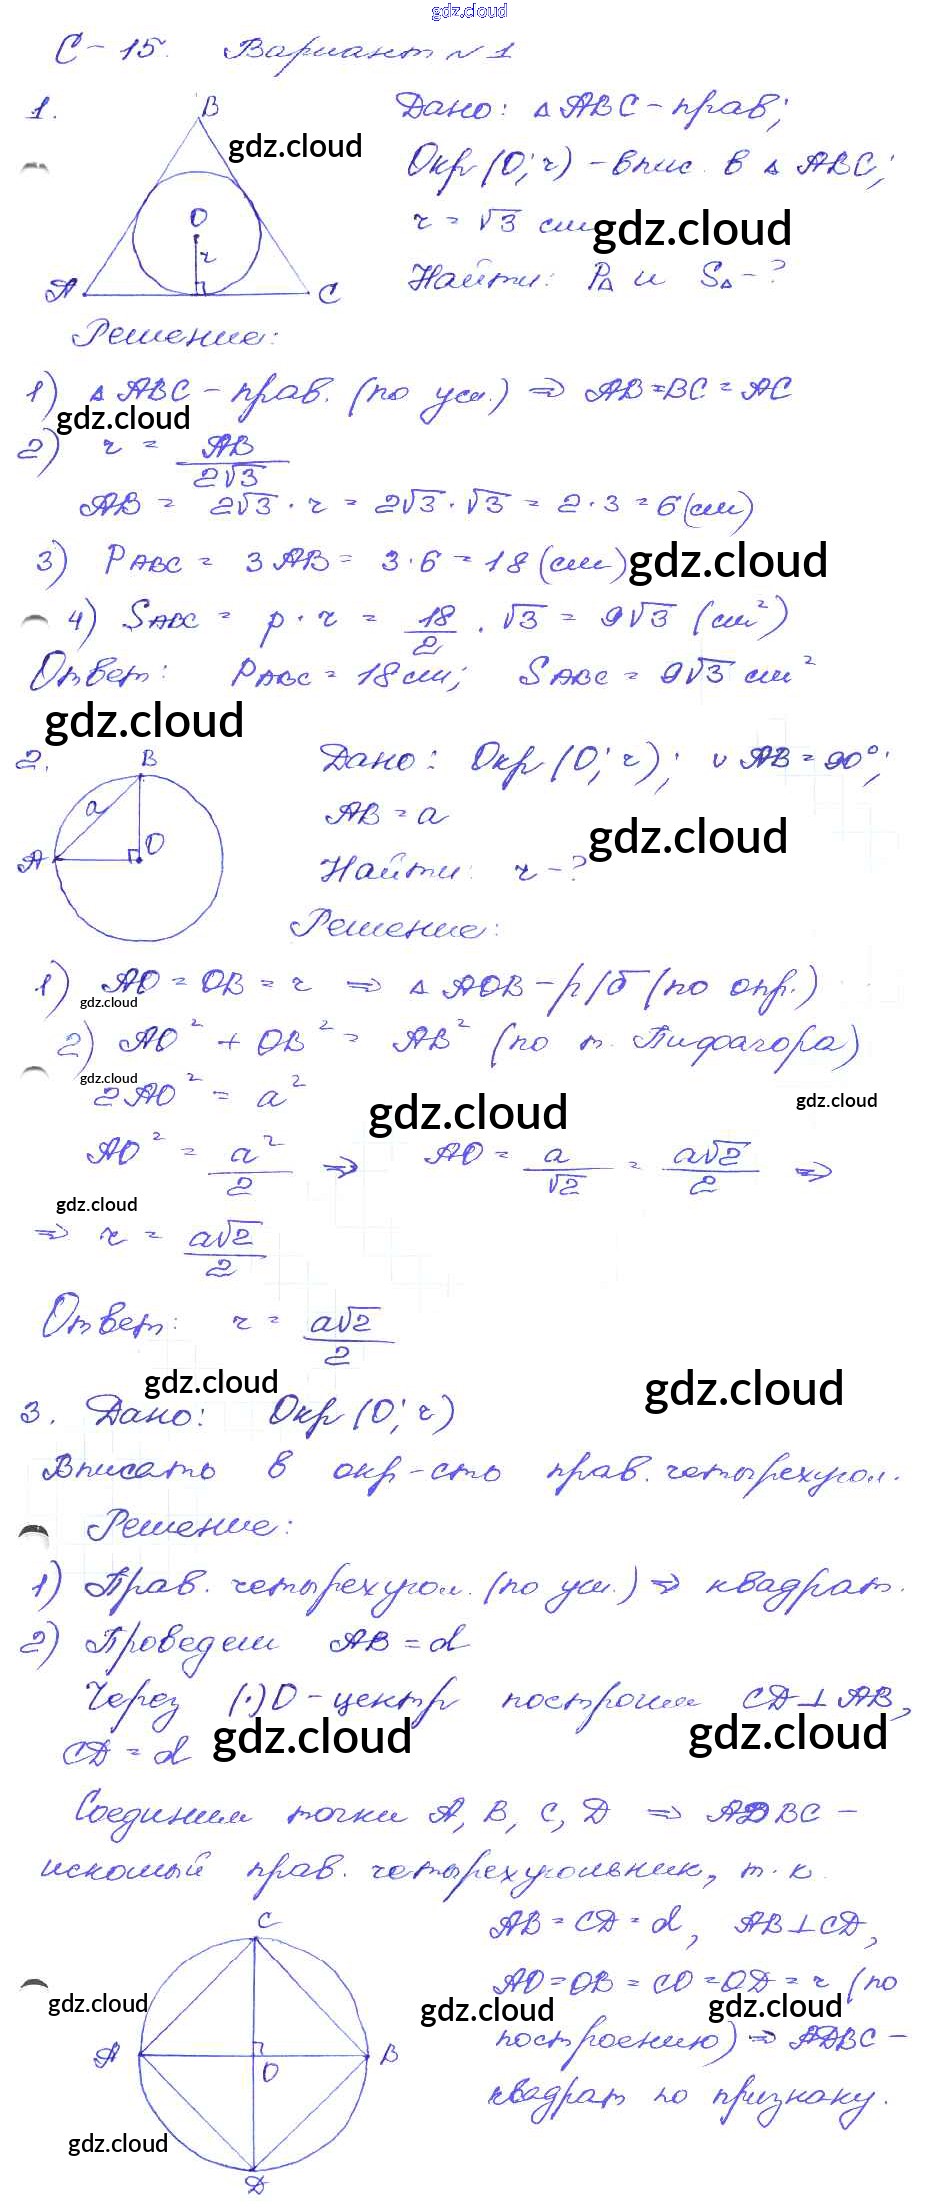 gdz.cloud
С-15. Вариант №1
1.
B
gdz.cloud
O
r
A
C
Дано: △ABC-прав;
Окр(O;r)-впис. в △ABC;
r = √3 см
gdz.cloud
Найти: P△ и S△-?
Решение:
1) △ABC-прав. (по усл.) ⇒ AB=BC=AC
gdz.cloud
2) r = AB/2√3
AB = 2√3 · r = 2√3 · √3 = 2·3 = 6 (см)
3) PABC = 3AB = 3·6 = 18 (см)
gdz.cloud
4) SABC = p · r = 18/2 · √3 = 9√3 (см²)
Ответ: PABC = 18 см; SABC = 9√3 см²
gdz.cloud
2.
B
a
O
A
Дано: Окр(O;r); ∪AB = 90°;
AB = a
gdz.cloud
Найти: r-?
Решение:
1) AO = OB = r ⇒ △AOB-р/б (по опр.)
gdz.cloud
2) AO² + OB² = AB² (по т. Пифагора)
gdz.cloud
2AO² = a²
gdz.cloud
gdz.cloud
AO² = a²/2 ⇒ AO = a/√2 = a√2/2 ⇒
gdz.cloud
⇒ r = a√2/2
Ответ: r = a√2/2
gdz.cloud
gdz.cloud
3. Дано: Окр(O;r)
Вписать в окр-сть прав. четырехугол.
Решение:
1) Прав. четырехугол. (по усл.) ⇒ квадрат.
2) Проведем AB = d
Через (·)O-центр построим CD⊥AB,
gdz.cloud
gdz.cloud
CD = d
Соединим точки A, B, C, D ⇒ ADBC-
искомый прав. четырехугольник, т.к.
C
A
B
O
D
AB = CD = d, AB⊥CD,
AO=OB=CO=OD=r (по
gdz.cloud
gdz.cloud
gdz.cloud
построению) ⇒ ADBC-
квадрат по признаку.
gdz.cloud